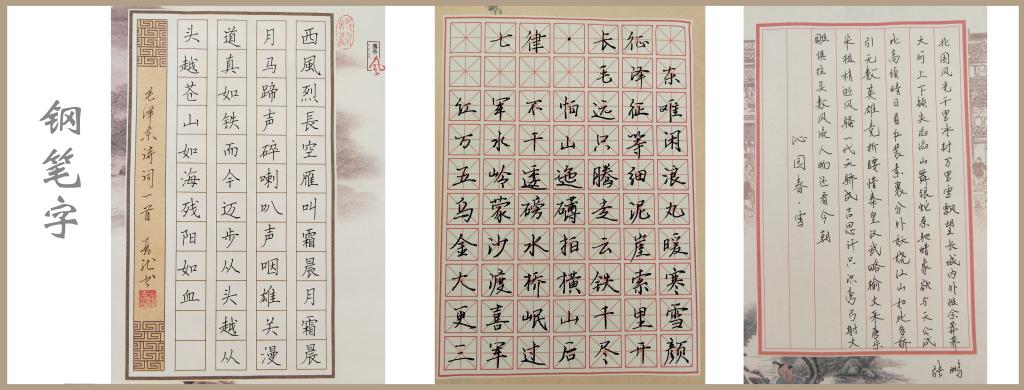 钢笔字
西風烈長空雁叫霜晨月霜晨
月马蹄声碎喇叭声咽雄关漫
道真如铁而今迈步从头越从
头越苍山如海残阳如血
毛泽东诗词一首
七律·长征
毛泽东
红军不怕远征难
万水千山只等闲
五岭逶迤腾细浪
乌蒙磅礴走泥丸
金沙水拍云崖暖
大渡桥横铁索寒
更喜岷山千里雪
三军过后尽开颜
北国风光千里冰封万里雪飘望长城内外惟余莽莽
大河上下顿失滔滔山舞银蛇原驰蜡象欲与天公试
比高须晴日看红装素裹分外妖娆江山如此多娇
引无数英雄竞折腰惜秦皇汉武略输文采唐宗
宋祖稍逊风骚一代天骄成吉思汗只识弯弓射大
雕俱往矣数风流人物还看今朝
沁园春·雪
张鹏